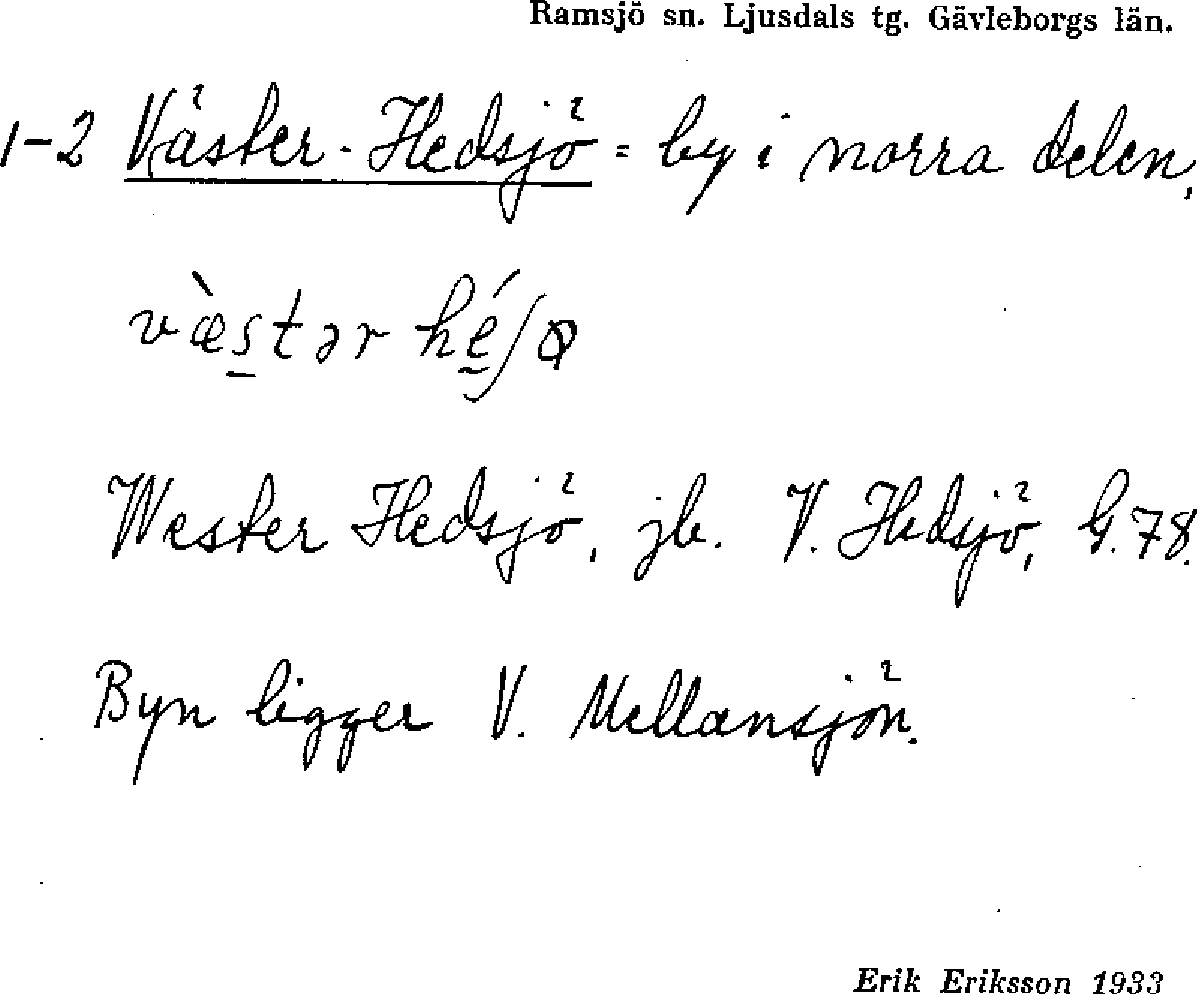 Ramsjö sn. Ljusdals tg. Gävleborgs län.
1-2 Väster-Hedsjö = by i norra delen.
væ̀stər hḛ́ʃꝋ
Wester Hedsjö, jb. V. Hedsjö, G.78.
Byn ligger V. Mellansjön.
Erik Eriksson 1933